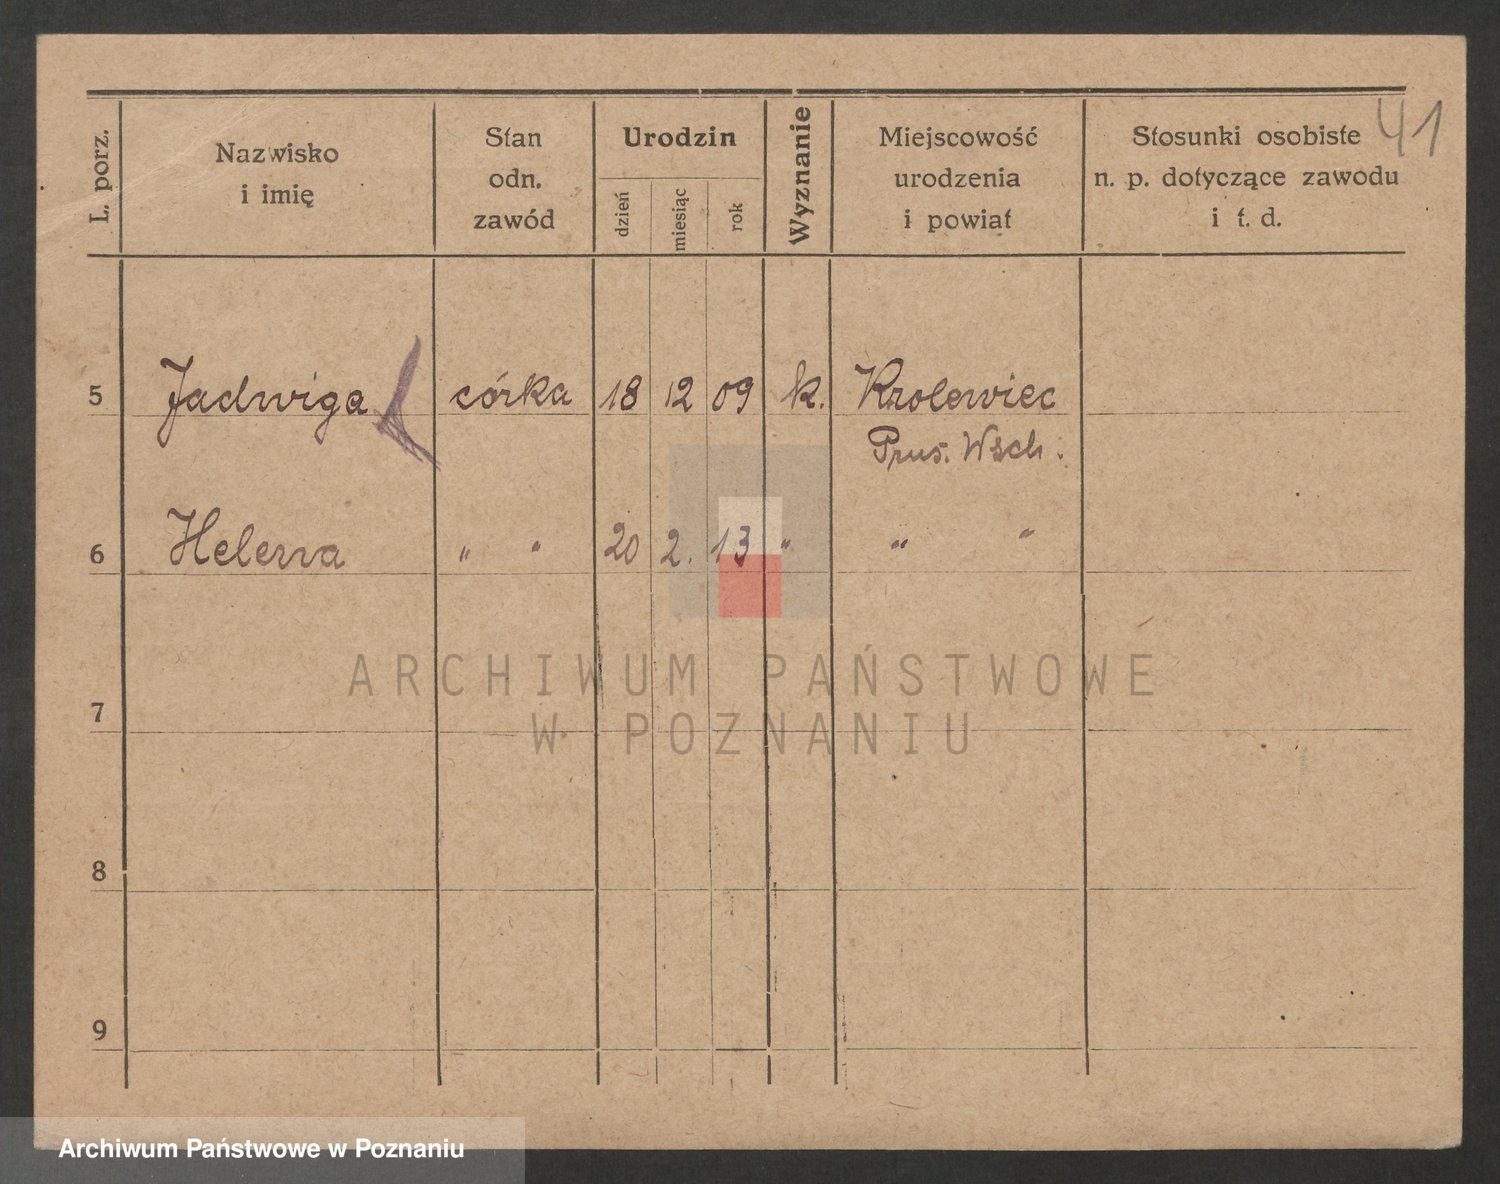 41
L. porz.
Nazwisko
i imię
Stan
odn.
zawód
Urodzin
dzień
miesiąc
rok
Wyznanie
Miejscowość
urodzenia
i powiat
Stosunki osobiste
n. p. dotyczące zawodu
i t. d.
5 Jadwiga córka 18 12 09 k. Krolewiec
Prus. Wsch.
6 Helena " " 20 2. 13 " " "
ARCHIWUM PAŃSTWOWE
7
W POZNANIU
8
9
Archiwum Państwowe w Poznaniu